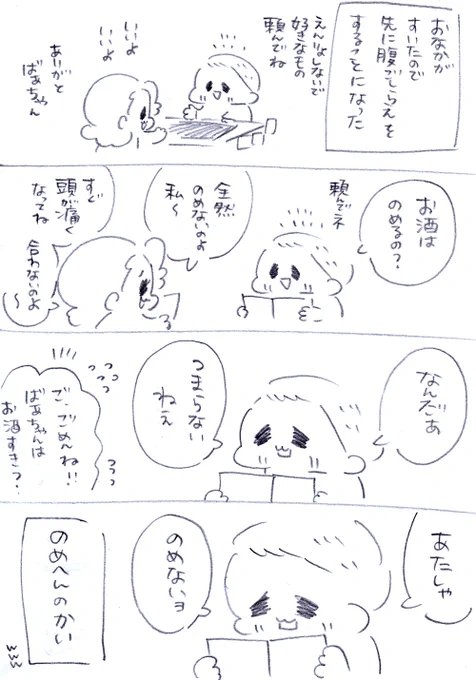 おなかが
すいたので
先に腹ごしらえを
することになった
えんりょしないで
好きなもの
頼んでね
いいよ
いいよ
ありがと
ばぁちゃん
お酒は
のめるの?
頼んでネ
全然
のめないのよ
私〜
すぐ
頭が痛く
なってね
合わないのよ
〜
なんだぁ
つまらない
ねぇ
ご、ごめんね!!
ばぁちゃんは
お酒すき?
あたしゃ
のめないョ
のめへんのかい
www